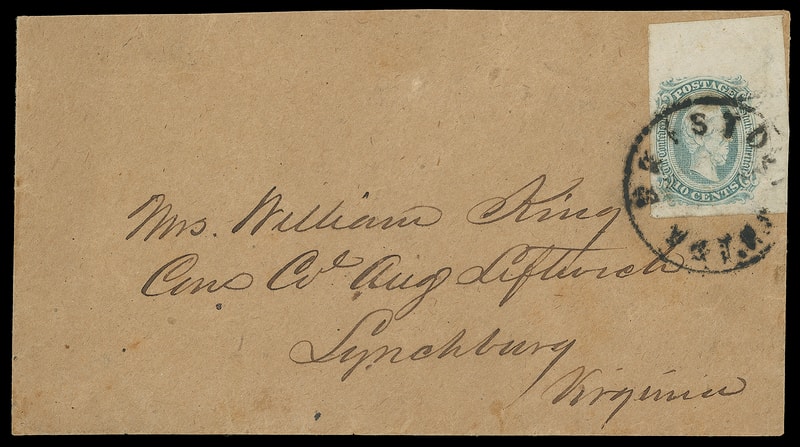 POSTAGE
TEN CENTS
BRISTOL
Mrs. William King
Care Col Aug Leftwich
Lynchburg
Virginia